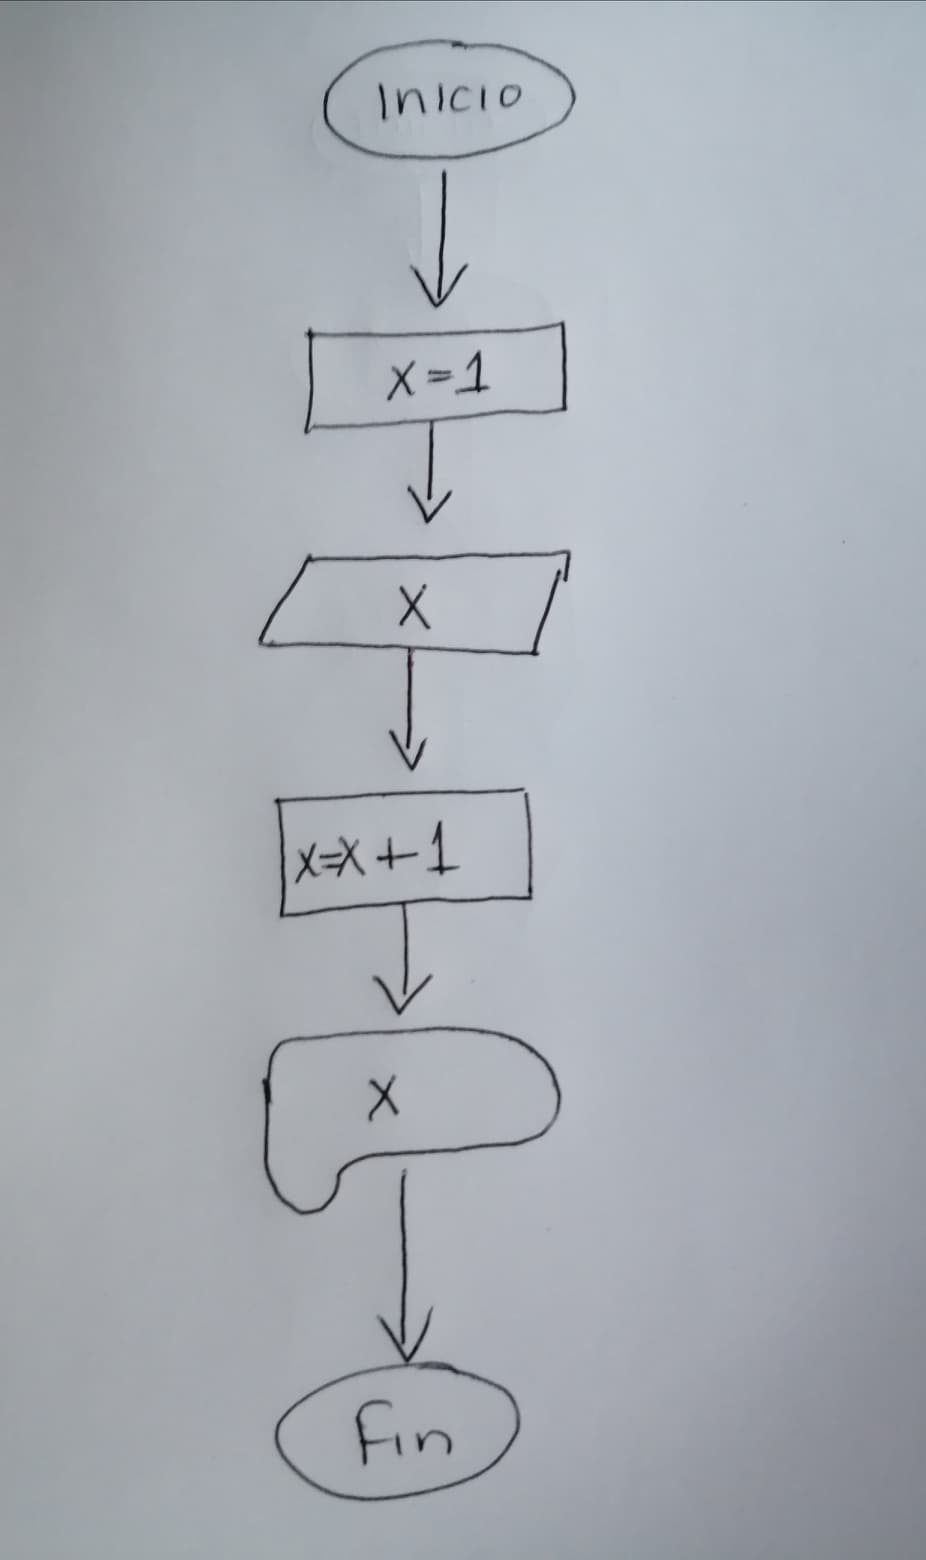 Inicio
X=1
X
X=X+1
X
Fin